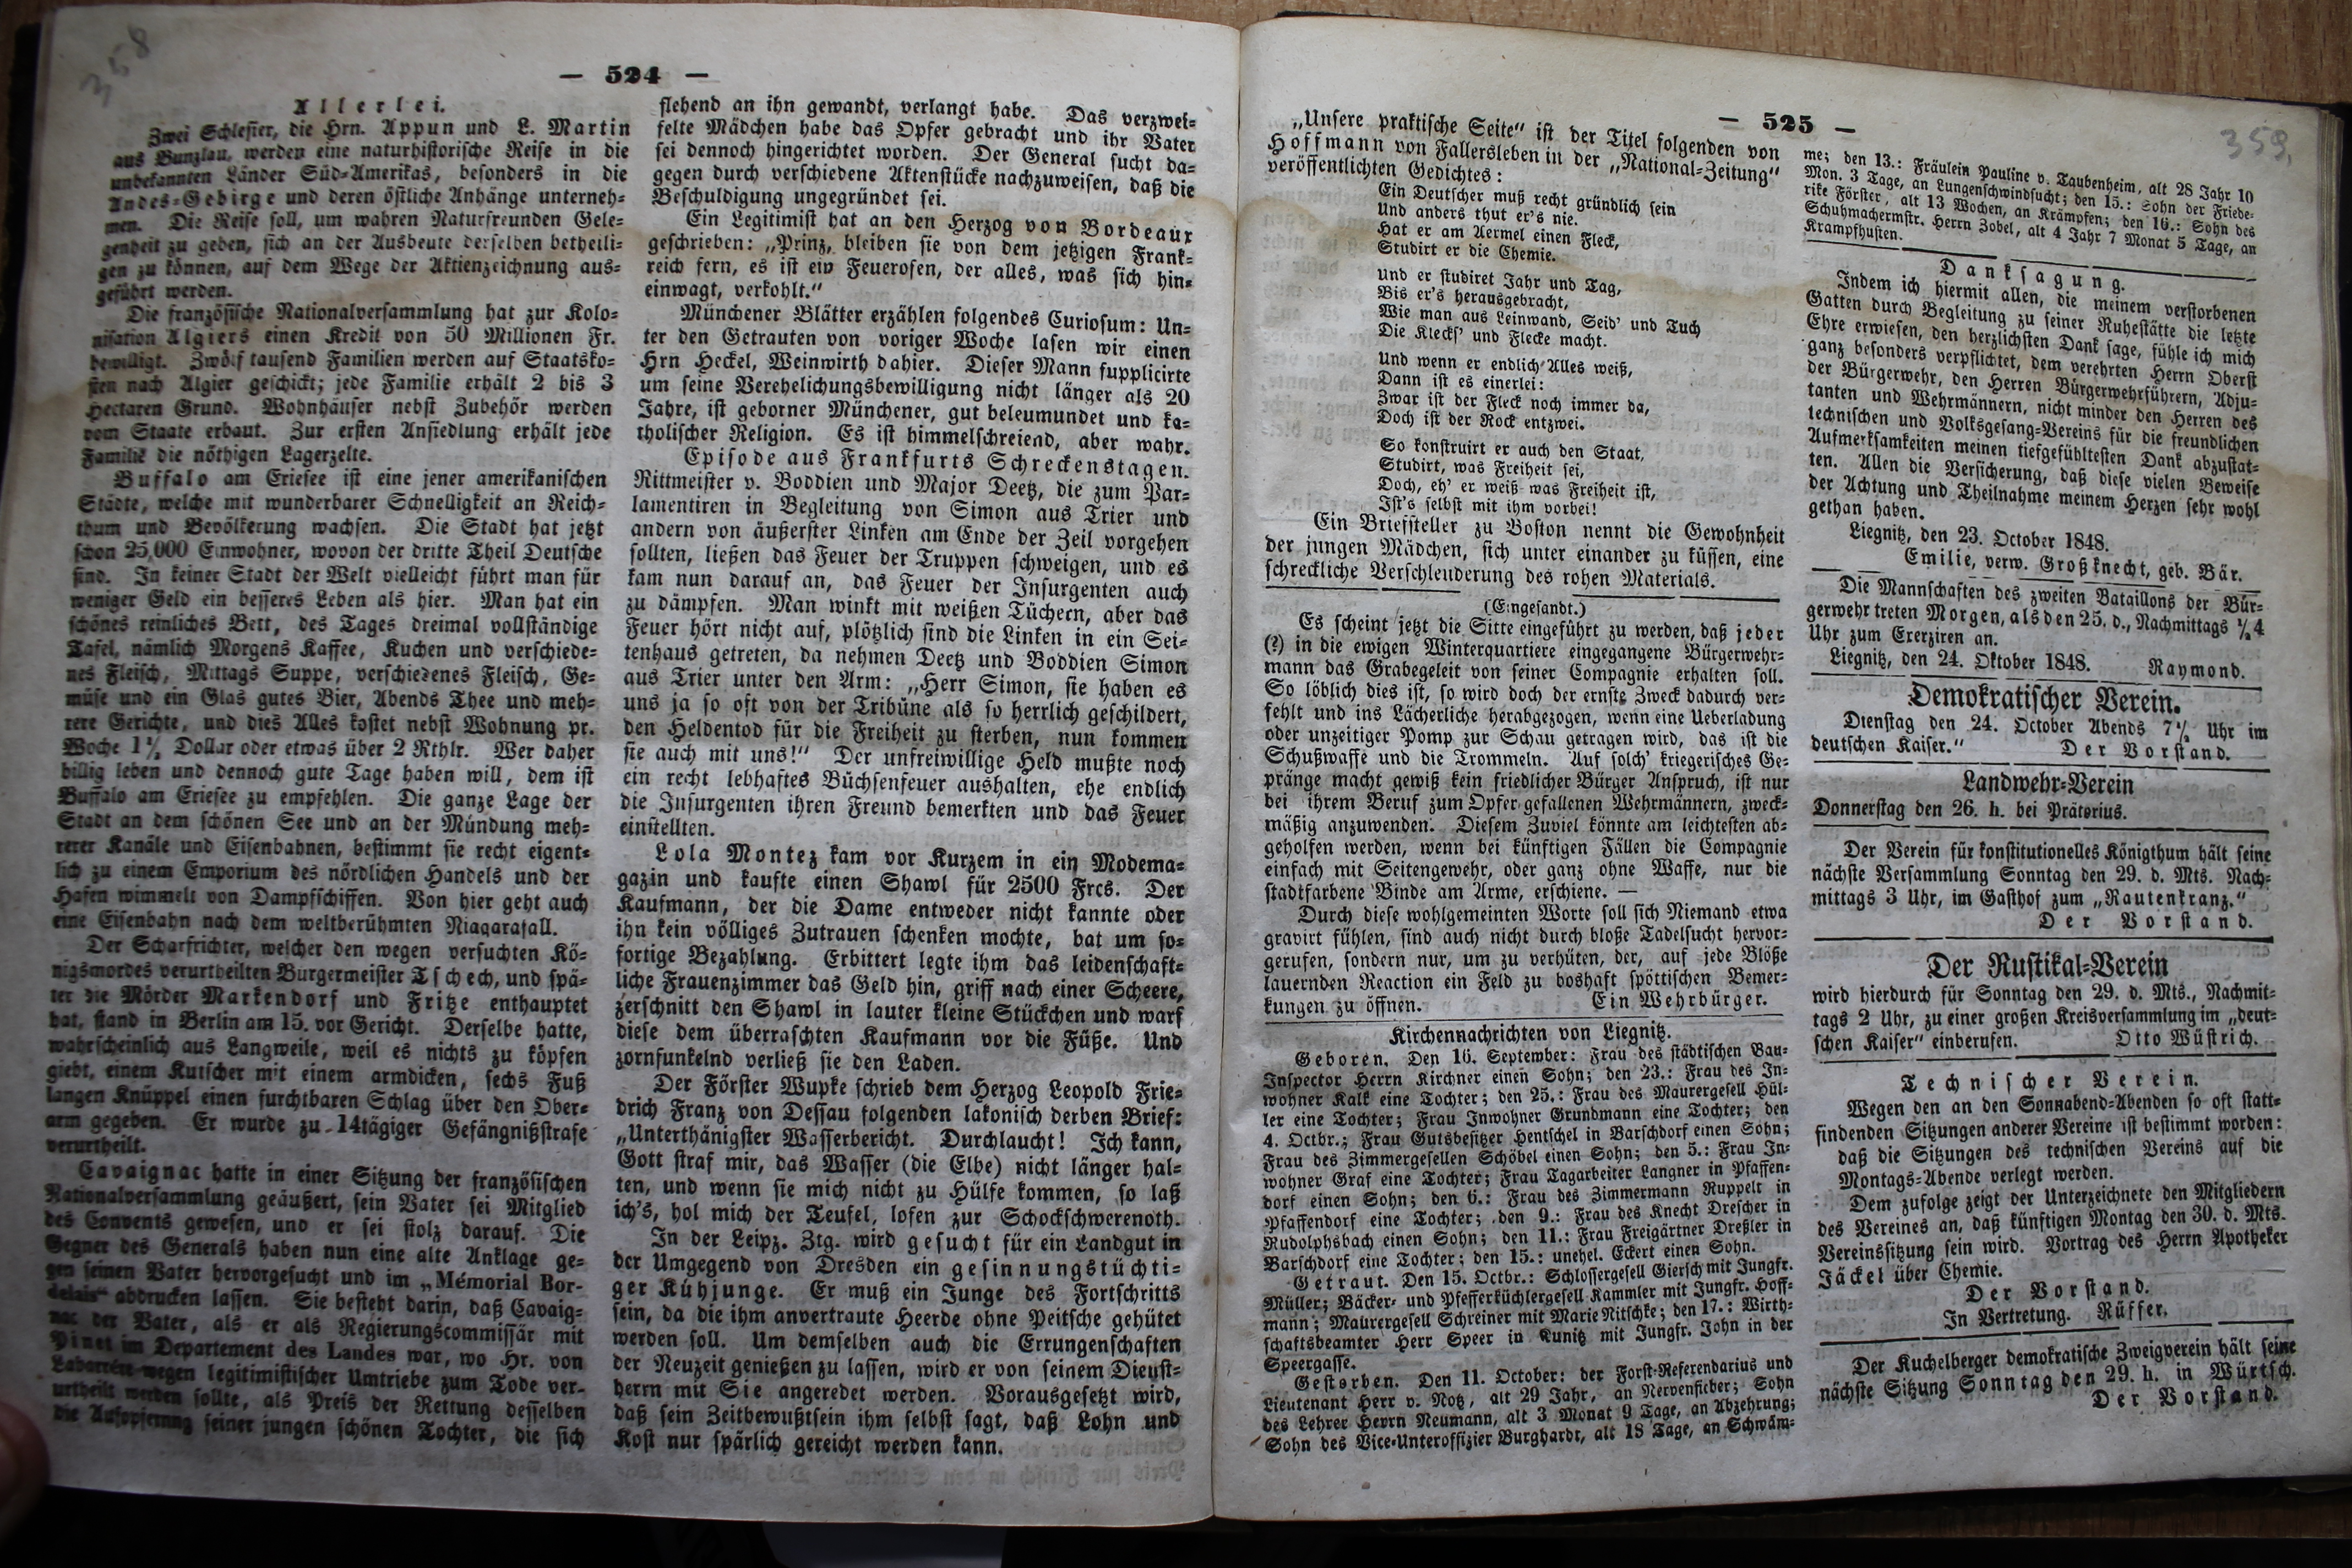 358
— 524 —
Allerlei.
Zwei Schlesier, die Hrn. Appun und L. Martin
aus Bunzlau, werden eine naturhistorische Reise in die
unbekannten Länder Süd-Amerikas, besonders in die
Andes-Gebirge und deren östliche Anhänge unterneh-
men. Die Reise soll, um wahren Naturfreunden Gele-
genheit zu geben, sich an der Ausbeute derselben betheili-
gen zu können, auf dem Wege der Aktienzeichnung aus-
geführt werden.
Die französische Nationalversammlung hat zur Kolo-
nisation Algiers einen Kredit von 50 Millionen Fr.
bewilligt. Zwölf tausend Familien werden auf Staatsko-
sten nach Algier geschickt; jede Familie erhält 2 bis 3
Hectaren Grund. Wohnhäuser nebst Zubehör werden
vom Staate erbaut. Zur ersten Ansiedlung erhält jede
Familie die nöthigen Lagerzelte.
Buffalo am Eriesee ist eine jener amerikanischen
Städte, welche mit wunderbarer Schnelligkeit an Reich-
thum und Bevölkerung wachsen. Die Stadt hat jetzt
schon 25,000 Einwohner, wovon der dritte Theil Deutsche
sind. In keiner Stadt der Welt vielleicht führt man für
weniger Geld ein besseres Leben als hier. Man hat ein
schönes reinliches Bett, des Tages dreimal vollständige
Tafel, nämlich Morgens Kaffee, Kuchen und verschiede-
nes Fleisch, Mittags Suppe, verschiedenes Fleisch, Ge-
müse und ein Glas gutes Bier, Abends Thee und meh-
rere Gerichte, und dies Alles kostet nebst Wohnung pr.
Woche 1½ Dollar oder etwas über 2 Rthlr. Wer daher
billig leben und dennoch gute Tage haben will, dem ist
Buffalo am Eriesee zu empfehlen. Die ganze Lage der
Stadt an dem schönen See und an der Mündung meh-
rerer Kanäle und Eisenbahnen, bestimmt sie recht eigent-
lich zu einem Emporium des nördlichen Handels und der
Hafen wimmelt von Dampfschiffen. Von hier geht auch
eine Eisenbahn nach dem weltberühmten Niagarafall.
Der Scharfrichter, welcher den wegen versuchten Kö-
nigsmordes verurtheilten Bürgermeister Tschech, und spä-
ter die Mörder Markendorf und Fritze enthauptet
hat, stand in Berlin am 15. vor Gericht. Derselbe hatte,
wahrscheinlich aus Langweile, weil es nichts zu köpfen
giebt, einem Kutscher mit einem armdicken, sechs Fuß
langen Knüppel einen furchtbaren Schlag über den Ober-
arm gegeben. Er wurde zu 14tägiger Gefängnißstrafe
verurtheilt.
Cavaignac hatte in einer Sitzung der französischen
Nationalversammlung geäußert, sein Vater sei Mitglied
des Convents gewesen, und er sei stolz darauf. Die
Gegner des Generals haben nun eine alte Anklage ge-
gen seinen Vater hervorgesucht und im „Mémorial Bor-
delais“ abdrucken lassen. Sie besteht darin, daß Cavaig-
nac der Vater, als er als Regierungscommissär mit
Pinet im Departement des Landes war, wo Hr. von
Labarrère wegen legitimistischer Umtriebe zum Tode ver-
urtheilt werden sollte, als Preis der Rettung desselben
die Aufopferung seiner jungen schönen Tochter, die sich
flehend an ihn gewandt, verlangt habe. Das verzwei-
felte Mädchen habe das Opfer gebracht und ihr Vater
sei dennoch hingerichtet worden. Der General sucht da-
gegen durch verschiedene Aktenstücke nachzuweisen, daß die
Beschuldigung ungegründet sei.
Ein Legitimist hat an den Herzog von Bordeaux
geschrieben: „Prinz, bleiben sie von dem jetzigen Frank-
reich fern, es ist ein Feuerofen, der alles, was sich hin-
einwagt, verkohlt.“
Münchener Blätter erzählen folgendes Curiosum: Un-
ter den Getrauten von voriger Woche lasen wir einen
Hrn Heckel, Weinwirth dahier. Dieser Mann supplicirte
um seine Verehelichungsbewilligung nicht länger als 20
Jahre, ist geborner Münchener, gut beleumundet und ka-
tholischer Religion. Es ist himmelschreiend, aber wahr.
Episode aus Frankfurts Schreckenstagen.
Rittmeister v. Boddien und Major Deetz, die zum Par-
lamentiren in Begleitung von Simon aus Trier und
andern von äußerster Linken am Ende der Zeil vorgehen
sollten, ließen das Feuer der Truppen schweigen, und es
kam nun darauf an, das Feuer der Insurgenten auch
zu dämpfen. Man winkt mit weißen Tüchern, aber das
Feuer hört nicht auf, plötzlich sind die Linken in ein Sei-
tenhaus getreten, da nehmen Deetz und Boddien Simon
aus Trier unter den Arm: „Herr Simon, sie haben es
uns ja so oft von der Tribüne als so herrlich geschildert,
den Heldentod für die Freiheit zu sterben, nun kommen
sie auch mit uns!“ Der unfreiwillige Held mußte noch
ein recht lebhaftes Büchsenfeuer aushalten, ehe endlich
die Insurgenten ihren Freund bemerkten und das Feuer
einstellten.
Lola Montez kam vor Kurzem in ein Modema-
gazin und kaufte einen Shawl für 2500 Frcs. Der
Kaufmann, der die Dame entweder nicht kannte oder
ihn kein völliges Zutrauen schenken mochte, bat um so-
fortige Bezahlung. Erbittert legte ihm das leidenschaft-
liche Frauenzimmer das Geld hin, griff nach einer Scheere,
zerschnitt den Shawl in lauter kleine Stückchen und warf
diese dem überraschten Kaufmann vor die Füße. Und
zornfunkelnd verließ sie den Laden.
Der Förster Wupke schrieb dem Herzog Leopold Frie-
drich Franz von Dessau folgenden lakonisch derben Brief:
„Unterthänigster Wasserbericht. Durchlaucht! Ich kann,
Gott straf mir, das Wasser (die Elbe) nicht länger hal-
ten, und wenn sie mich nicht zu Hülfe kommen, so laß
ich's, hol mich der Teufel, lofen zur Schockschwerenoth.
In der Leipz. Ztg. wird gesucht für ein Landgut in
der Umgegend von Dresden ein gesinnungstüchti-
ger Kühjunge. Er muß ein Junge des Fortschritts
sein, da die ihm anvertraute Heerde ohne Peitsche gehütet
werden soll. Um demselben auch die Errungenschaften
der Neuzeit genießen zu lassen, wird er von seinem Dienst-
herrn mit Sie angeredet werden. Vorausgesetzt wird,
daß sein Zeitbewußtsein ihm selbst sagt, daß Lohn und
Kost nur spärlich gereicht werden kann.
— 525 —
359,
„Unsere praktische Seite“ ist der Titel folgenden von
Hoffmann von Fallersleben in der „National-Zeitung“
veröffentlichten Gedichtes:
Ein Deutscher muß recht gründlich sein
Und anders thut er's nie.
Hat er am Aermel einen Fleck,
Studirt er die Chemie.
Und er studiret Jahr und Tag,
Bis er's herausgebracht,
Wie man aus Leinwand, Seid' und Tuch
Die Klecks' und Flecke macht.
Und wenn er endlich Alles weiß,
Dann ist es einerlei:
Zwar ist der Fleck noch immer da,
Doch ist der Rock entzwei.
So konstruirt er auch den Staat,
Studirt, was Freiheit sei,
Doch, eh' er weiß was Freiheit ist,
Ist's selbst mit ihm vorbei!
Ein Briefsteller zu Boston nennt die Gewohnheit
der jungen Mädchen, sich unter einander zu küssen, eine
schreckliche Verschleuderung des rohen Materials.
(Eingesandt.)
Es scheint jetzt die Sitte eingeführt zu werden, daß jeder
(?) in die ewigen Winterquartiere eingegangene Bürgerwehr-
mann das Grabegeleit von seiner Compagnie erhalten soll.
So löblich dies ist, so wird doch der ernste Zweck dadurch ver-
fehlt und ins Lächerliche herabgezogen, wenn eine Ueberladung
oder unzeitiger Pomp zur Schau getragen wird, das ist die
Schußwaffe und die Trommeln. Auf solch' kriegerisches Ge-
pränge macht gewiß kein friedlicher Bürger Anspruch, ist nur
bei ihrem Beruf zum Opfer gefallenen Wehrmännern, zweck-
mäßig anzuwenden. Diesem Zuviel könnte am leichtesten ab-
geholfen werden, wenn bei künftigen Fällen die Compagnie
einfach mit Seitengewehr, oder ganz ohne Waffe, nur die
stadtfarbene Binde am Arme, erschiene. —
Durch diese wohlgemeinten Worte soll sich Niemand etwa
gravirt fühlen, sind auch nicht durch bloße Tadelsucht hervor-
gerufen, sondern nur, um zu verhüten, der, auf jede Blöße
lauernden Reaction ein Feld zu boshaft spöttischen Bemer-
kungen zu öffnen. Ein Wehrbürger.
Kirchennachrichten von Liegnitz.
Geboren. Den 16. September: Frau des städtischen Bau-
Inspector Herrn Kirchner einen Sohn; den 23.: Frau des In-
wohner Kalk eine Tochter; den 25.: Frau des Maurergesell Hül-
ler eine Tochter; Frau Inwohner Grundmann eine Tochter; den
4. Octbr.; Frau Gutsbesitzer Hentschel in Barschdorf einen Sohn;
Frau des Zimmergesellen Schöbel einen Sohn; den 5.: Frau In-
wohner Graf eine Tochter; Frau Tagarbeiter Langner in Pfaffen-
dorf einen Sohn; den 6.: Frau des Zimmermann Ruppelt in
Pfaffendorf eine Tochter; den 9.: Frau des Knecht Drescher in
Rudolphsbach einen Sohn; den 11.: Frau Freigärtner Dreßler in
Barschdorf eine Tochter; den 15.: unehel. Eckert einen Sohn.
Getraut. Den 15. Octbr.: Schlossergesell Giersch mit Jungfr.
Müller; Bäcker- und Pfefferküchlergesell Kammler mit Jungfr. Hoff-
mann; Maurergesell Schreiner mit Marie Nitschke; den 17.: Wirth-
schaftsbeamter Herr Speer in Kunitz mit Jungfr. John in der
Speergasse.
Gestorben. Den 11. October: der Forst-Referendarius und
Lieutenant Herr v. Notz, alt 29 Jahr, an Nervenfieber; Sohn
des Lehrer Herrn Neumann, alt 3 Monat 9 Tage, an Abzehrung;
Sohn des Vice-Unteroffizier Burghardt, alt 18 Tage, an Schwäm-
me; den 13.: Fräulein Pauline v. Taubenheim, alt 28 Jahr 10
Mon. 3 Tage, an Lungenschwindsucht; den 15.: Sohn der Friede-
rike Förster, alt 13 Wochen, an Krämpfen; den 16.: Sohn des
Schuhmachermstr. Herrn Zobel, alt 4 Jahr 7 Monat 5 Tage, an
Krampfhusten.
Danksagung.
Indem ich hiermit allen, die meinem verstorbenen
Gatten durch Begleitung zu seiner Ruhestätte die letzte
Ehre erwiesen, den herzlichsten Dank sage, fühle ich mich
ganz besonders verpflichtet, dem verehrten Herrn Oberst
der Bürgerwehr, den Herren Bürgerwehrführern, Adju-
tanten und Wehrmännern, nicht minder den Herren des
technischen und Volksgesang-Vereins für die freundlichen
Aufmerksamkeiten meinen tiefgefühltesten Dank abzustat-
ten. Allen die Versicherung, daß diese vielen Beweise
der Achtung und Theilnahme meinem Herzen sehr wohl
gethan haben.
Liegnitz, den 23. October 1848.
Emilie, verw. Großknecht, geb. Bär.
Die Mannschaften des zweiten Bataillons der Bür-
gerwehr treten Morgen, als den 25. d., Nachmittags ½4
Uhr zum Exerziren an.
Liegnitz, den 24. Oktober 1848. Raymond.
Demokratischer Verein.
Dienstag den 24. October Abends 7½ Uhr im
deutschen Kaiser.“ Der Vorstand.
Landwehr-Verein
Donnerstag den 26. h. bei Prätorius.
Der Verein für konstitutionelles Königthum hält seine
nächste Versammlung Sonntag den 29. d. Mts. Nach-
mittags 3 Uhr, im Gasthof zum „Rautenkranz.“
Der Vorstand.
Der Rustikal-Verein
wird hierdurch für Sonntag den 29. d. Mts., Nachmit-
tags 2 Uhr, zu einer großen Kreisversammlung im „deut-
schen Kaiser“ einberufen. Otto Wüstrich.
Technischer Verein.
Wegen den an den Sonnabend-Abenden so oft statt-
findenden Sitzungen anderer Vereine ist bestimmt worden:
daß die Sitzungen des technischen Vereins auf die
Montags-Abende verlegt werden.
Dem zufolge zeigt der Unterzeichnete den Mitgliedern
des Vereines an, daß künftigen Montag den 30. d. Mts.
Vereinssitzung sein wird. Vortrag des Herrn Apotheker
Jäckel über Chemie.
Der Vorstand.
In Vertretung. Rüffer.
Der Kuchelberger demokratische Zweigverein hält seine
nächste Sitzung Sonntag den 29. h. in Würtsch.
Der Vorstand.